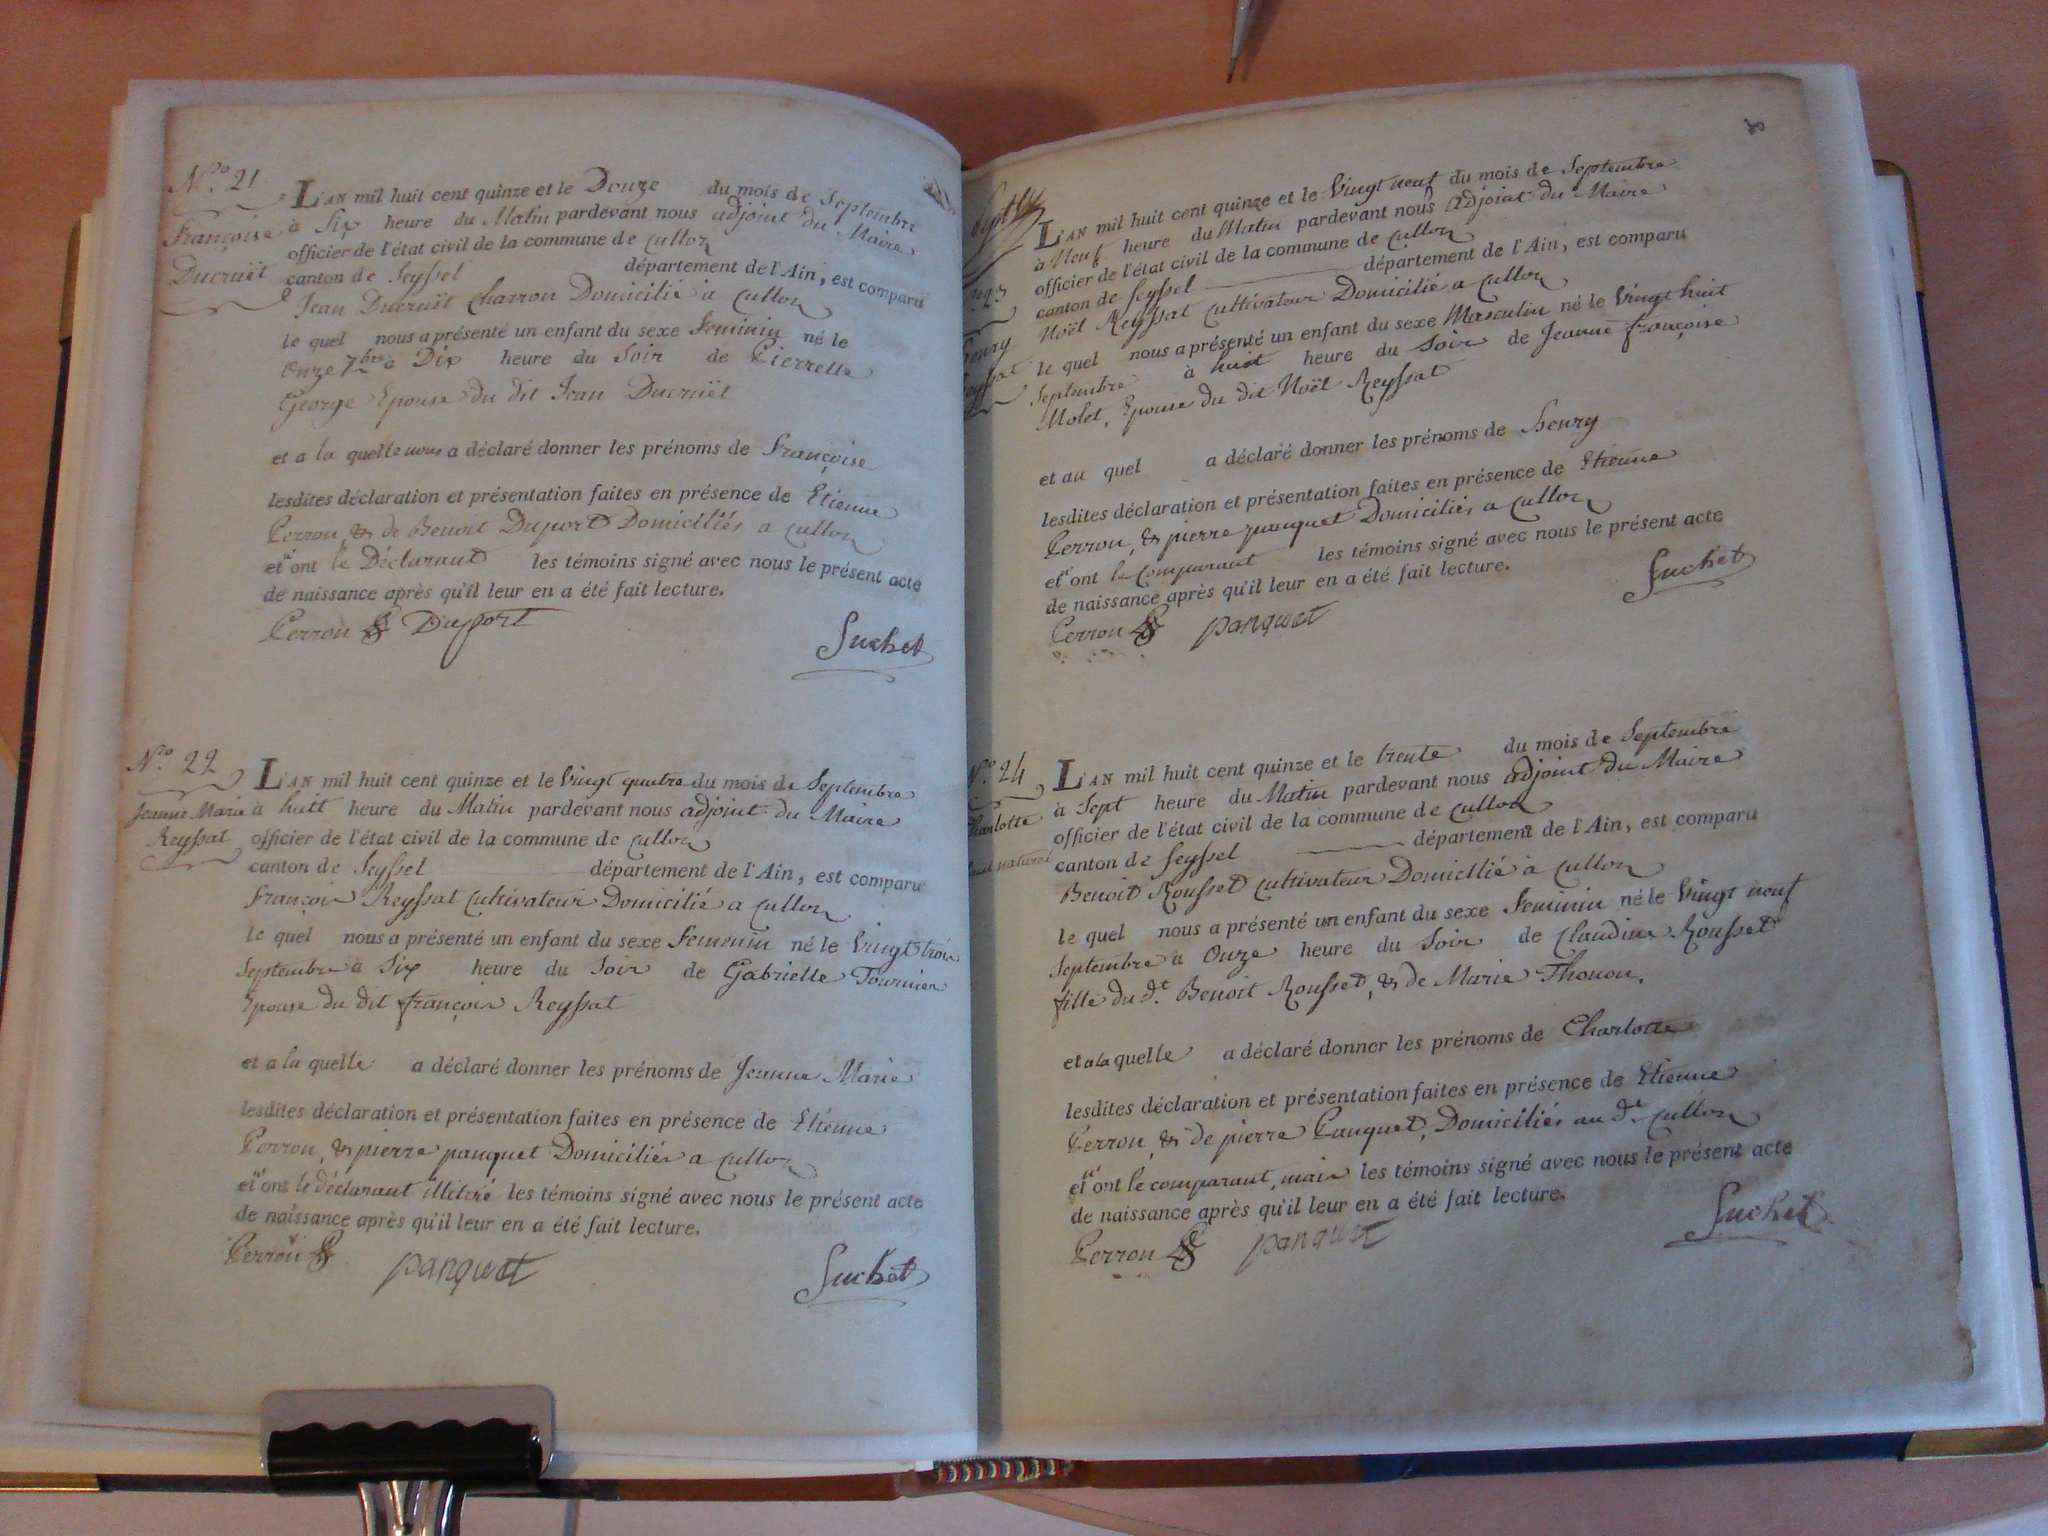 N.ro 21
Françoise
Ducruët
L'AN mil huit cent quinze et le Douze du mois de Septembre
à Six heure du Matin pardevant nous adjoint du Maire
officier de l'état civil de la commune de Culloz
canton de Seyssel département de l'Ain, est comparu
Jean Ducruët Charron Domicilié à Culloz
le quel nous a présenté un enfant du sexe Feminin né le
Onze 7bre à Dix heure du Soir de Pierrette
George Epouse du dit Jean Ducruët
et a la quelle nous a déclaré donner les prénoms de Françoise
lesdites déclaration et présentation faites en présence de Etienne
Perron, & de Benoit Duport Domiciliés a Culloz
et ont le Déclarant les témoins signé avec nous le présent acte
de naissance après qu'il leur en a été fait lecture.
Perron Duport
Suchet
N.ro 22
Jeanne Marie
Reyssat
L'AN mil huit cent quinze et le Vingt quatre du mois de Septembre
à huit heure du Matin pardevant nous adjoint du Maire
officier de l'état civil de la commune de Culloz
canton de Seyssel département de l'Ain, est comparu
François Reyssat Cultivateur Domicilié a Culloz
le quel nous a présenté un enfant du sexe Femenin né le Vingt trois
Septembre à Six heure du Soir de Gabrielle Fournier
Epouse du dit françois Reyssat
et a la quelle a déclaré donner les prénoms de Jeanne Marie
lesdites déclaration et présentation faites en présence de Etienne
Perron, & pierre panquet Domiciliés a Culloz
et ont le déclarant illitéré les témoins signé avec nous le présent acte
de naissance après qu'il leur en a été fait lecture.
Perron panquet
Suchet
8
23
henry
L'AN mil huit cent quinze et le Vingt neuf du mois de Septembre
à Neuf heure du Matin pardevant nous adjoint du Maire
officier de l'état civil de la commune de Culloz
canton de Seyssel département de l'Ain, est comparu
Noël Reyssat Cultivateur Domicilié a Culloz
le quel nous a présenté un enfant du sexe Masculin né le Vingt huit
Septembre à huit heure du Soir de Jeanne françoise
Molet, Epouse du dit Noël Reyssat
et au quel a déclaré donner les prénoms de henry
lesdites déclaration et présentation faites en présence de Etienne
Perron, & pierre panquet Domiciliés a Culloz
et ont le comparant les témoins signé avec nous le présent acte
de naissance après qu'il leur en a été fait lecture.
Perron panquet
Suchet
N.o 24
Charlotte
naturel
L'AN mil huit cent quinze et le trente du mois de Septembre
à Sept heure du Matin pardevant nous adjoint du Maire
officier de l'état civil de la commune de Culloz
canton de Seyssel département de l'Ain, est comparu
Benoit Rousset Cultivateur Domicilié à Culloz
le quel nous a présenté un enfant du sexe Feminin né le Vingt neuf
Septembre à Onze heure du Soir de Claudine Rousset
fille du d.t Benoit Rousset, & de Marie Thonon.
et a la quelle a déclaré donner les prénoms de Charlotte
lesdites déclaration et présentation faites en présence de Etienne
Perron, & de pierre Panquet, Domiciliés au d.t Culloz
et ont le comparant, mais les témoins signé avec nous le présent acte
de naissance après qu'il leur en a été fait lecture.
Perron panquet
Suchet